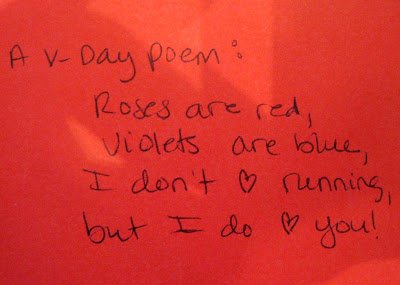 A V-Day poem:
Roses are red,
Violets are blue,
I don't ♡ running,
but I do ♡ you!